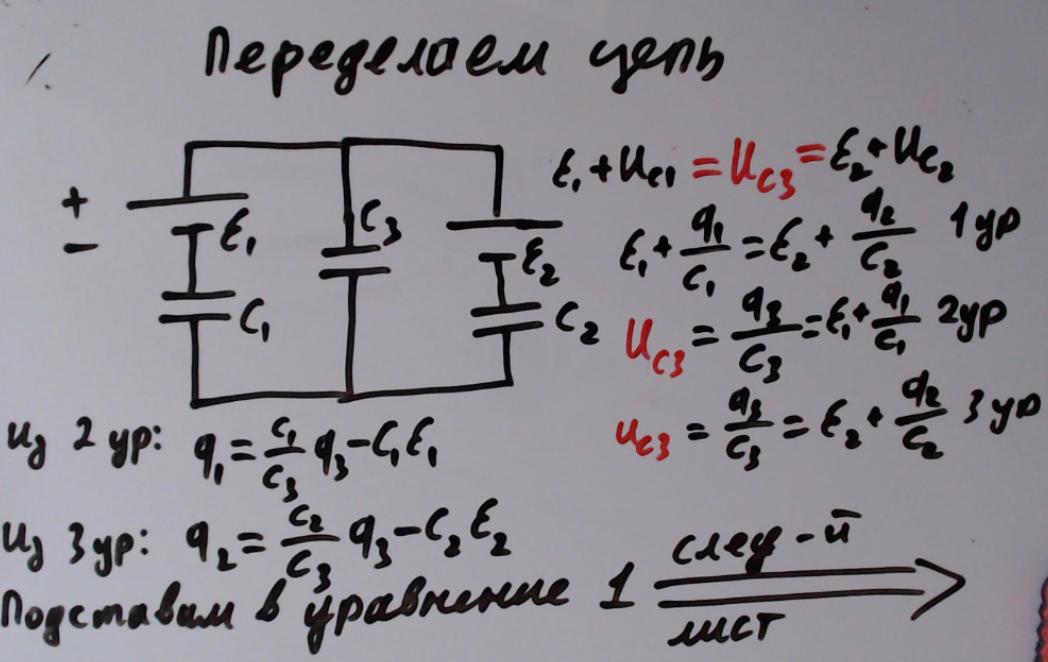 Переделаем цепь
+
−
ℰ₁
C₁
C₃
ℰ₂
C₂
ℰ₁ + U_C1 = U_C3 = ℰ₂ + U_C2
ℰ₁ + q₁/C₁ = ℰ₂ + q₂/C₂ 1 ур
U_C3 = q₃/C₃ = ℰ₁ + q₁/C₁ 2 ур
U_C3 = q₃/C₃ = ℰ₂ + q₂/C₂ 3 ур
Из 2 ур: q₁ = C₁/C₃ q₃ − C₁ℰ₁
Из 3 ур: q₂ = C₂/C₃ q₃ − C₂ℰ₂
Подставим в уравнение 1
след-й
лист